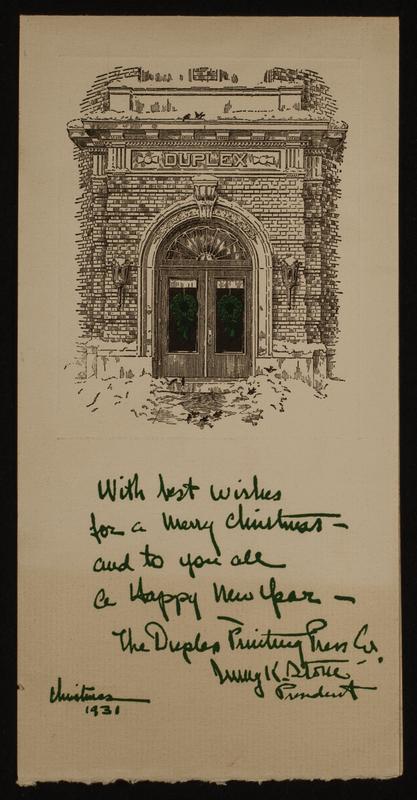 DUPLEX
With best wishes
for a Merry Christmas —
and to you all
a Happy New Year —
The Duplex Printing Press Co.
Irving K. Stone
President
Christmas
1931